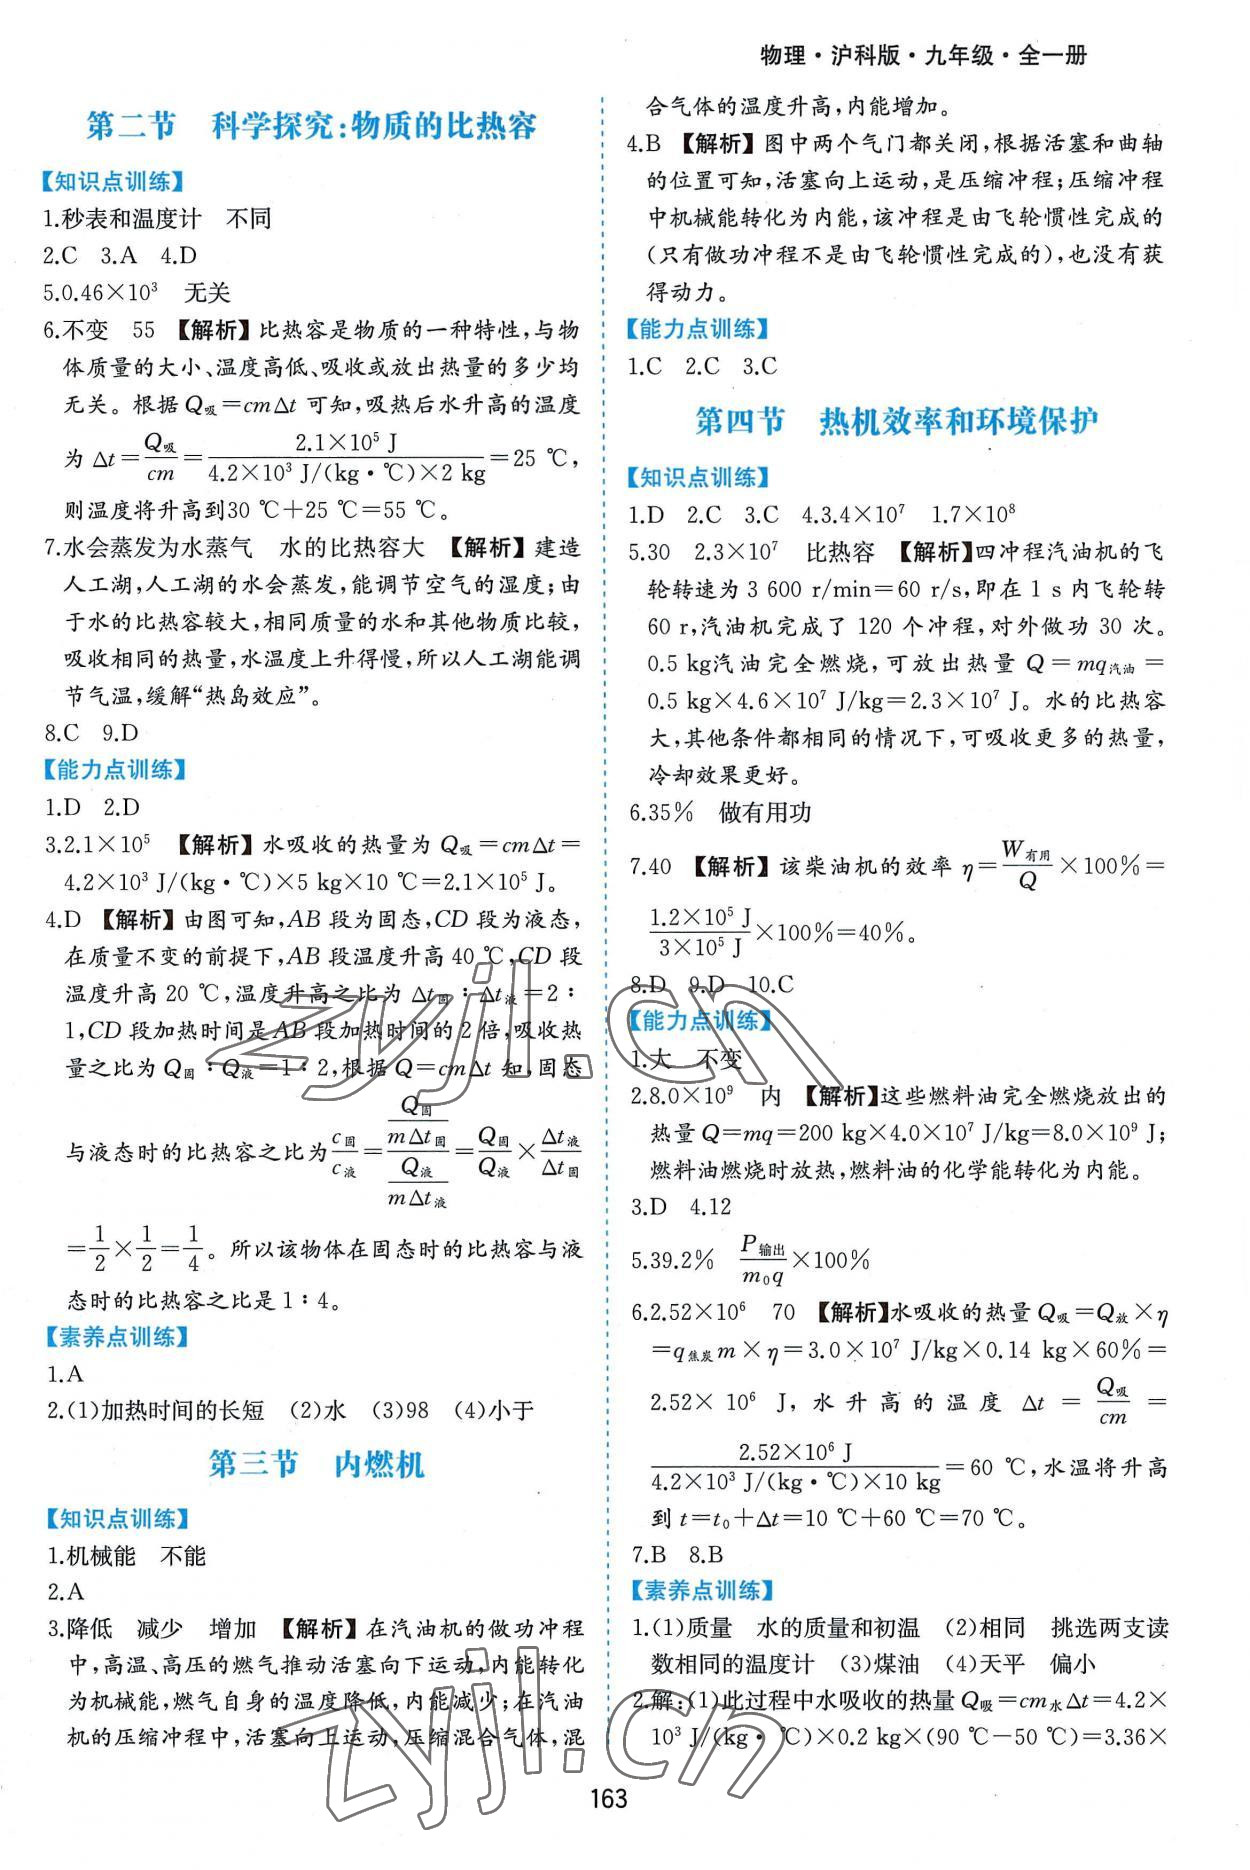 物理·沪科版·九年级·全一册
第二节　科学探究:物质的比热容
【知识点训练】
1.秒表和温度计　不同
2.C　3.A　4.D
5.0.46×10³　无关
6.不变　55　【解析】比热容是物质的一种特性,与物
体质量的大小、温度高低、吸收或放出热量的多少均
无关。根据Q吸=cmΔt 可知,吸热后水升高的温度
为 Δt=Q吸/cm=2.1×10⁵ J/(4.2×10³ J/(kg·℃)×2 kg)=25 ℃,
则温度将升高到30 ℃+25 ℃=55 ℃。
7.水会蒸发为水蒸气　水的比热容大　【解析】建造
人工湖,人工湖的水会蒸发,能调节空气的湿度;由
于水的比热容较大,相同质量的水和其他物质比较,
吸收相同的热量,水温度上升得慢,所以人工湖能调
节气温,缓解“热岛效应”。
8.C　9.D
【能力点训练】
1.D　2.D
3.2.1×10⁵　【解析】水吸收的热量为 Q吸=cmΔt=
4.2×10³ J/(kg·℃)×5 kg×10 ℃=2.1×10⁵ J。
4.D　【解析】由图可知,AB 段为固态,CD 段为液态,
在质量不变的前提下,AB 段温度升高 40 ℃,CD 段
温度升高 20 ℃,温度升高之比为 Δt固∶Δt液=2∶
1,CD 段加热时间是AB 段加热时间的 2 倍,吸收热
量之比为 Q固∶Q液=1∶2,根据 Q=cmΔt 知,固态
与液态时的比热容之比为c固/c液=(Q固/mΔt固)/(Q液/mΔt液)=Q固/Q液×Δt液/Δt固
=1/2×1/2=1/4。所以该物体在固态时的比热容与液
态时的比热容之比是 1∶4。
【素养点训练】
1.A
2.(1)加热时间的长短　(2)水　(3)98　(4)小于
第三节　内燃机
【知识点训练】
1.机械能　不能
2.A
3.降低　减少　增加　【解析】在汽油机的做功冲程
中,高温、高压的燃气推动活塞向下运动,内能转化
为机械能,燃气自身的温度降低,内能减少;在汽油
机的压缩冲程中,活塞向上运动,压缩混合气体,混
合气体的温度升高,内能增加。
4.B　【解析】图中两个气门都关闭,根据活塞和曲轴
的位置可知,活塞向上运动,是压缩冲程;压缩冲程
中机械能转化为内能,该冲程是由飞轮惯性完成的
(只有做功冲程不是由飞轮惯性完成的),也没有获
得动力。
【能力点训练】
1.C　2.C　3.C
第四节　热机效率和环境保护
【知识点训练】
1.D　2.C　3.C　4.3.4×10⁷　1.7×10⁸
5.30　2.3×10⁷　比热容　【解析】四冲程汽油机的飞
轮转速为 3 600 r/min=60 r/s,即在 1 s 内飞轮转
60 r,汽油机完成了 120 个冲程,对外做功 30 次。
0.5 kg汽油完全燃烧,可放出热量 Q=mq汽油=
0.5 kg×4.6×10⁷ J/kg=2.3×10⁷ J。水的比热容
大,其他条件都相同的情况下,可吸收更多的热量,
冷却效果更好。
6.35%　做有用功
7.40　【解析】该柴油机的效率 η=W有用/Q×100%=
1.2×10⁵ J/3×10⁵ J×100%=40%。
8.D　9.D　10.C
【能力点训练】
1.大　不变
2.8.0×10⁹　内　【解析】这些燃料油完全燃烧放出的
热量 Q=mq=200 kg×4.0×10⁷ J/kg=8.0×10⁹ J;
燃料油燃烧时放热,燃料油的化学能转化为内能。
3.D　4.12
5.39.2%　P输出/m₀q×100%
6.2.52×10⁶　70　【解析】水吸收的热量 Q吸=Q放×η
=q焦炭m×η=3.0×10⁷ J/kg×0.14 kg×60%=
2.52×10⁶ J,水升高的温度 Δt=Q吸/cm=
2.52×10⁶ J/(4.2×10³ J/(kg·℃)×10 kg)=60 ℃,水温将升高
到 t=t₀+Δt=10 ℃+60 ℃=70 ℃。
7.B　8.B
【素养点训练】
1.(1)质量　水的质量和初温　(2)相同　挑选两支读
数相同的温度计　(3)煤油　(4)天平　偏小
2.解:(1)此过程中水吸收的热量Q吸=cm水Δt=4.2×
10³ J/(kg·℃)×0.2 kg×(90 ℃－50 ℃)=3.36×
163
zyjl.cn
zyjl.cn